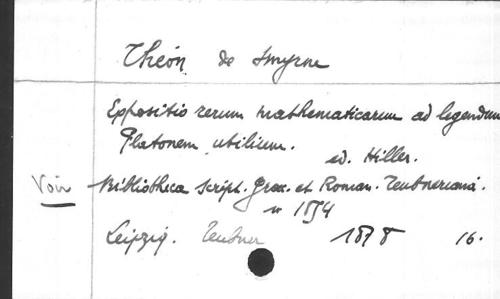 Théon de Smyrne
Expositio rerum mathematicarum ad legendum
Platonem utilium.
ed. Hiller.
Voir Bibliotheca script. Graec. et Roman. Teubneriana.
n° 1854
Leipzig. Teubner 1878 16.